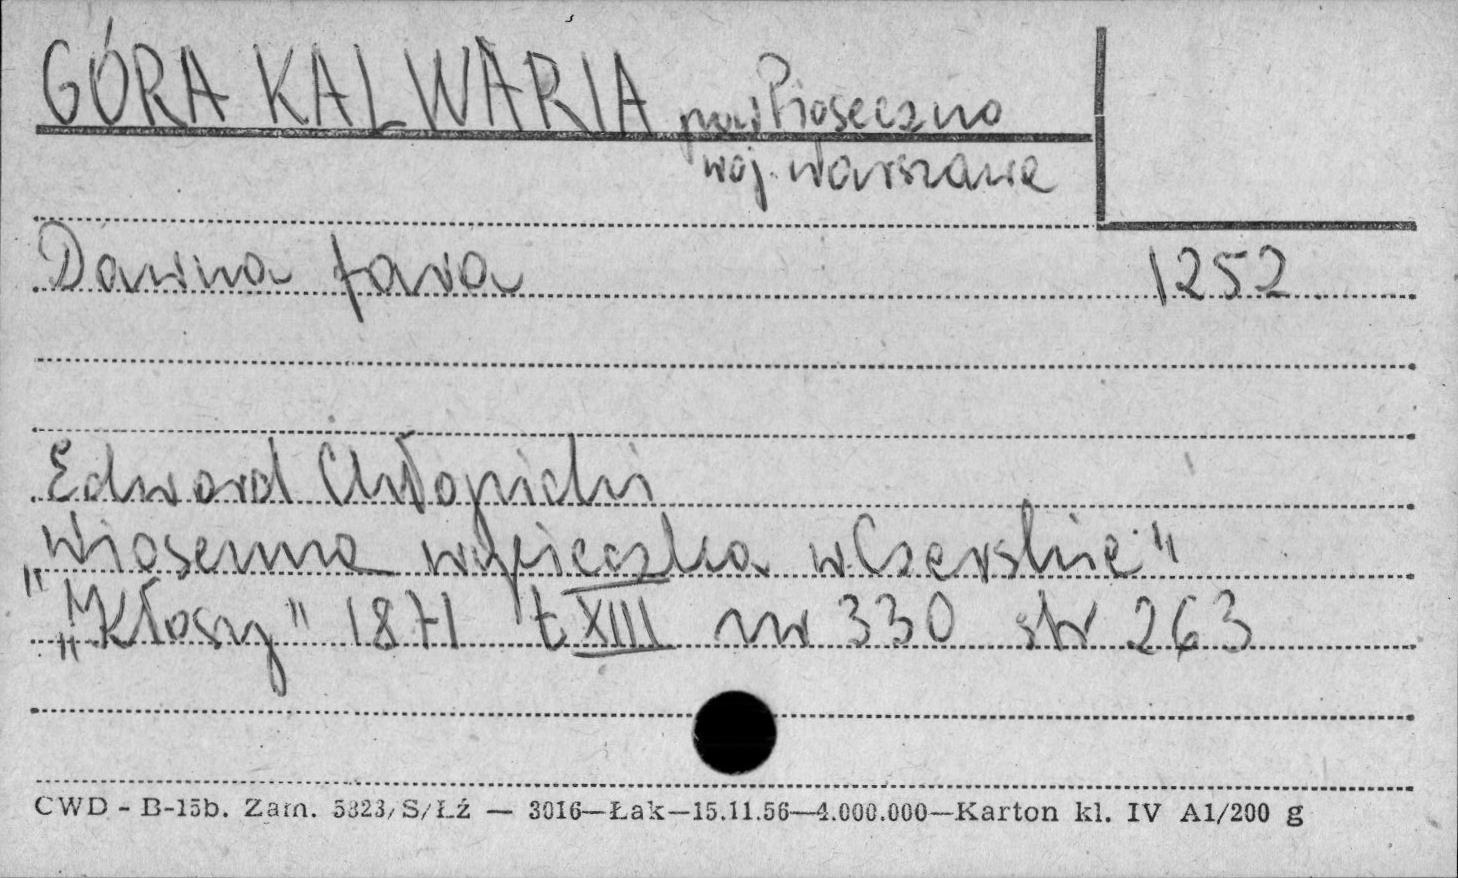 GÓRA KALWARIA pow Piaseczno
woj. Warszawa
Dawna fara 1252
Edward Chłopicki
"Wiosenna wycieczka w Czerskie"
"Kłosy" 1871 t XIII nr 330 str 263
CWD - B-15b. Zam. 5823/S/Łź — 3016—Łak—15.11.56—4.000.000—Karton kl. IV A1/200 g